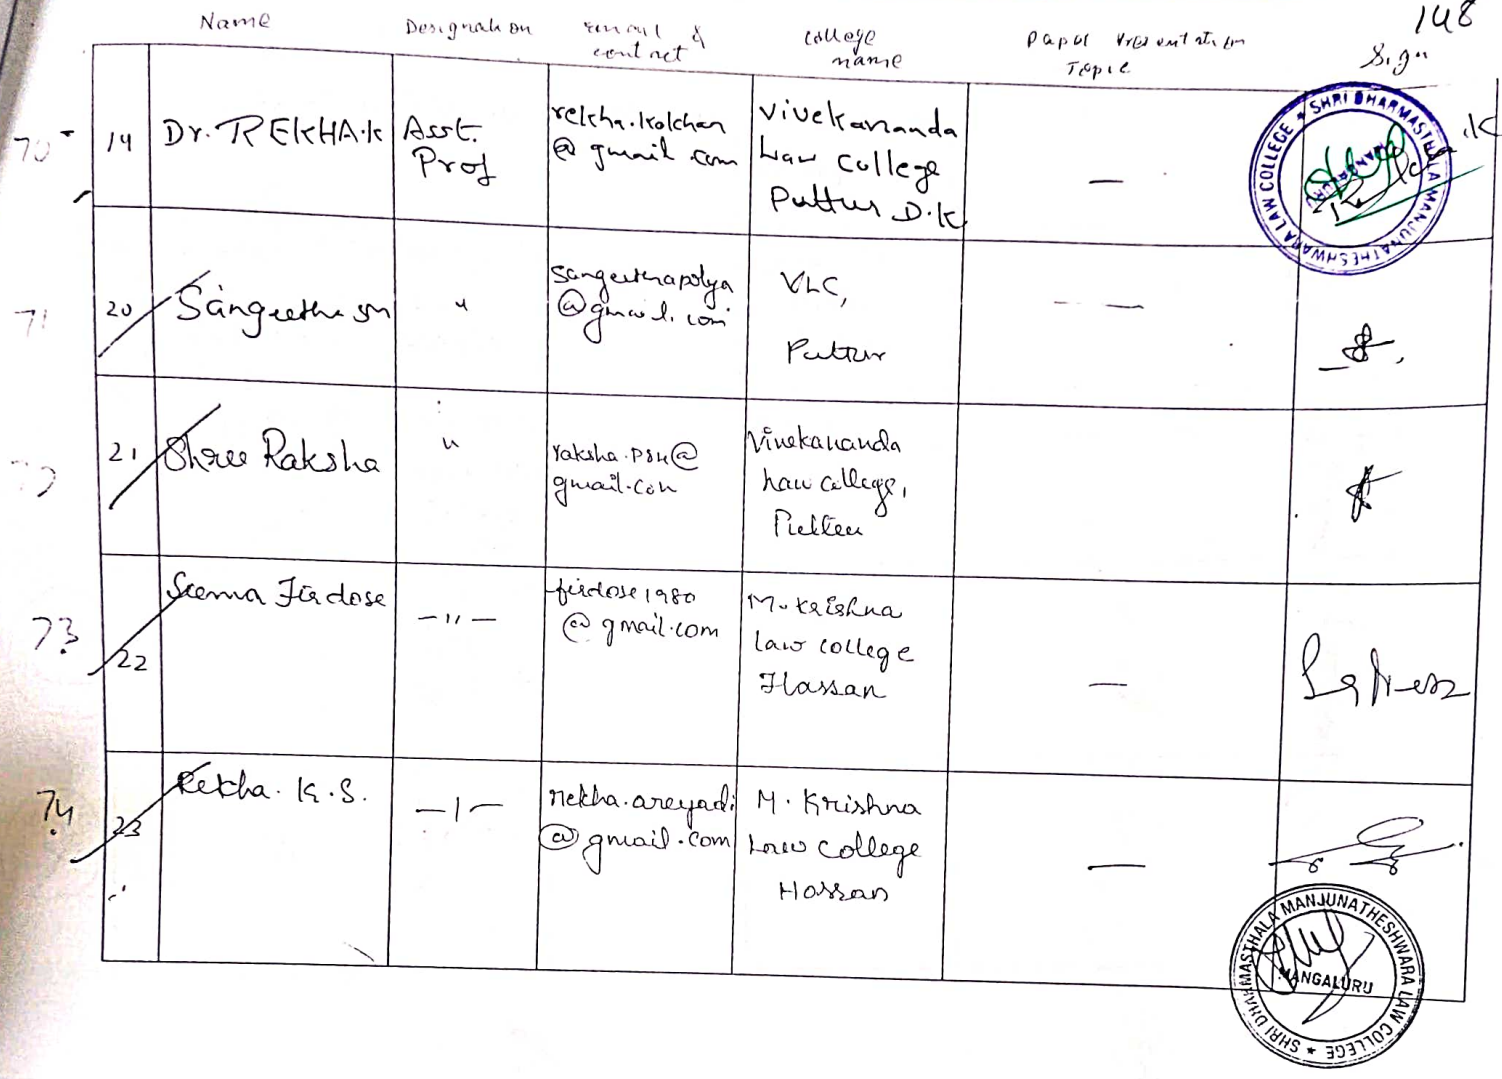 148
Name Designation email & contact college name Paper Presentation Topic Sign
70 19 Dr. REKHA.K Asst. Prof rekha.kolchar @gmail.com Vivekananda Law College Puttur D.K —
71 20 Sangeetha SM " sangeethapolya @gmail.com VLC, Puttur — —
21 Shree Raksha " raksha.psh@ gmail.com Vivekananda Law College, Puttur
73 22 Seema Firdose —"— firdose1980 @gmail.com M. Krishna law college Hassan —
74 23 Rekha. K.S. —"— rekha.areyadi @gmail.com M. Krishna Law College Hassan —
SHRI DHARMASTHALA MANJUNATHESHWARA LAW COLLEGE ★
MANGALURU
SHRI DHARMASTHALA MANJUNATHESHWARA LAW COLLEGE ★
MANGALURU